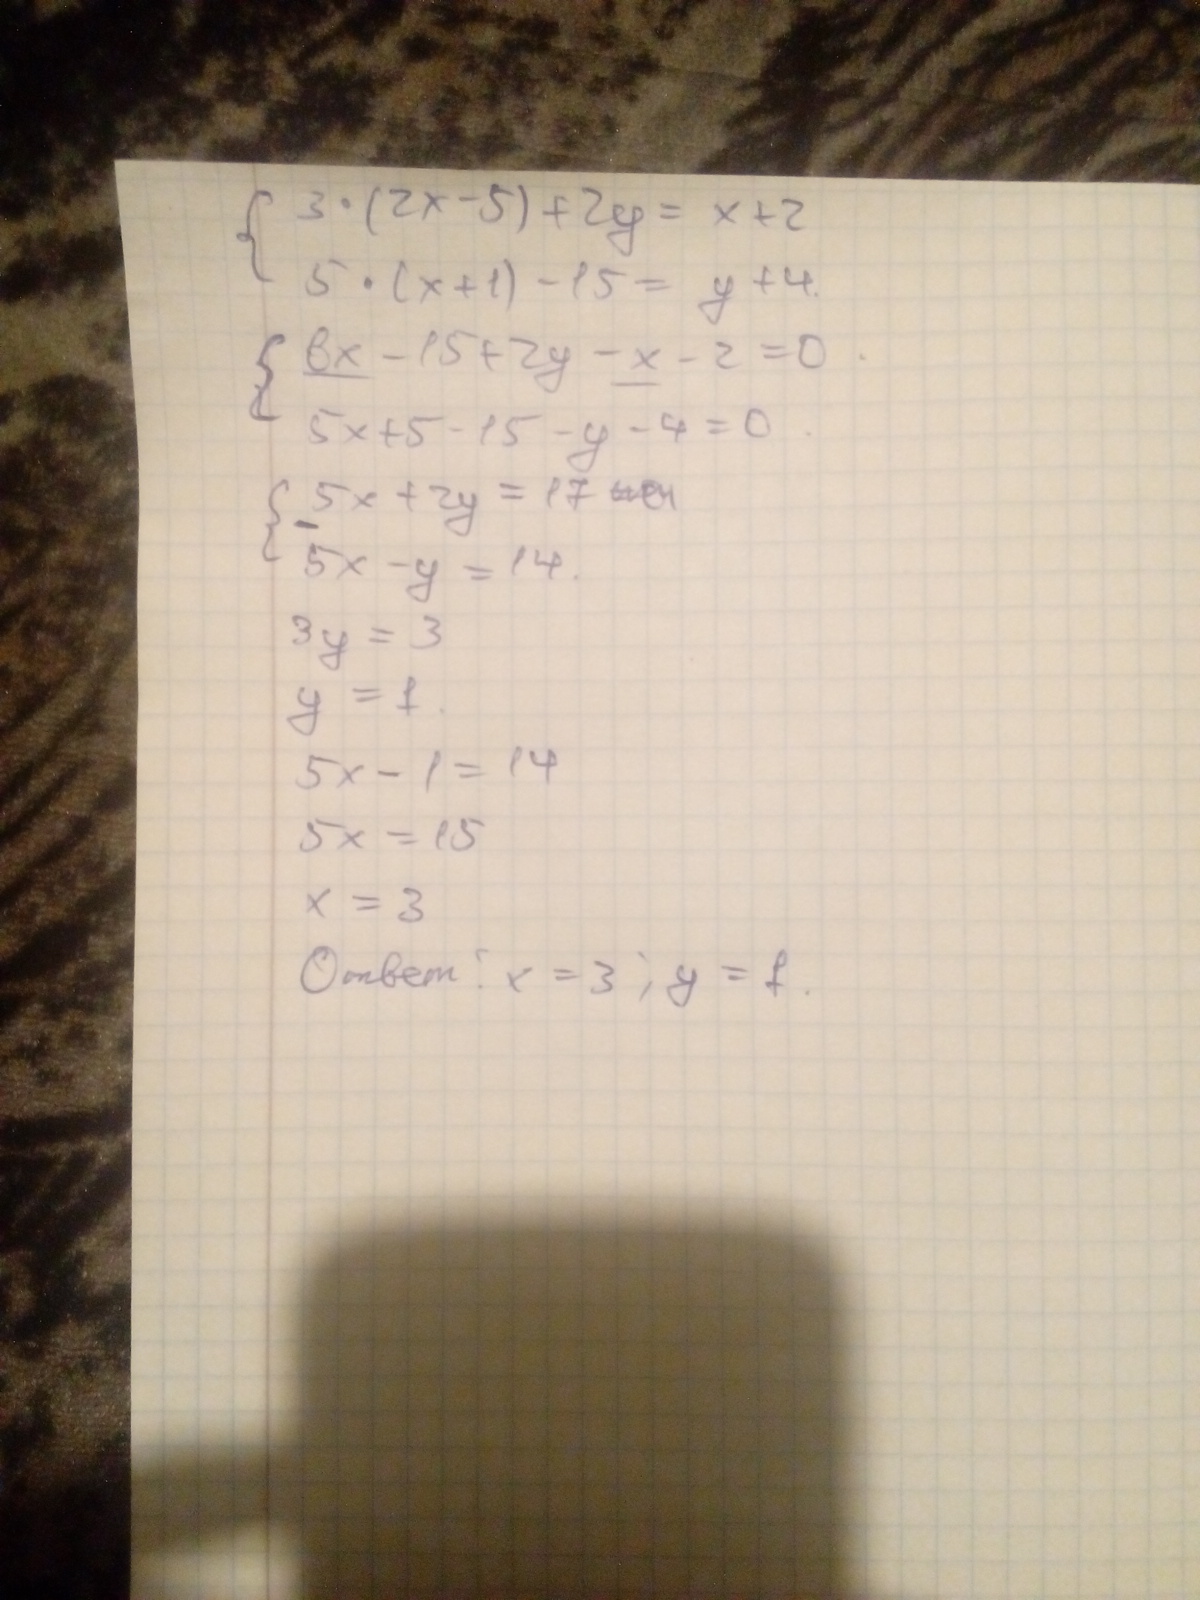 { 3·(2x-5)+2y= x+2
5·(x+1)-15= y+4.
{ 6x-15+2y-x-2=0.
5x+5-15-y-4=0.
{ 5x+2y=17
- 5x-y=14.
3y=3
y=1.
5x-1=14
5x=15
x=3
Ответ: x=3; y=1.